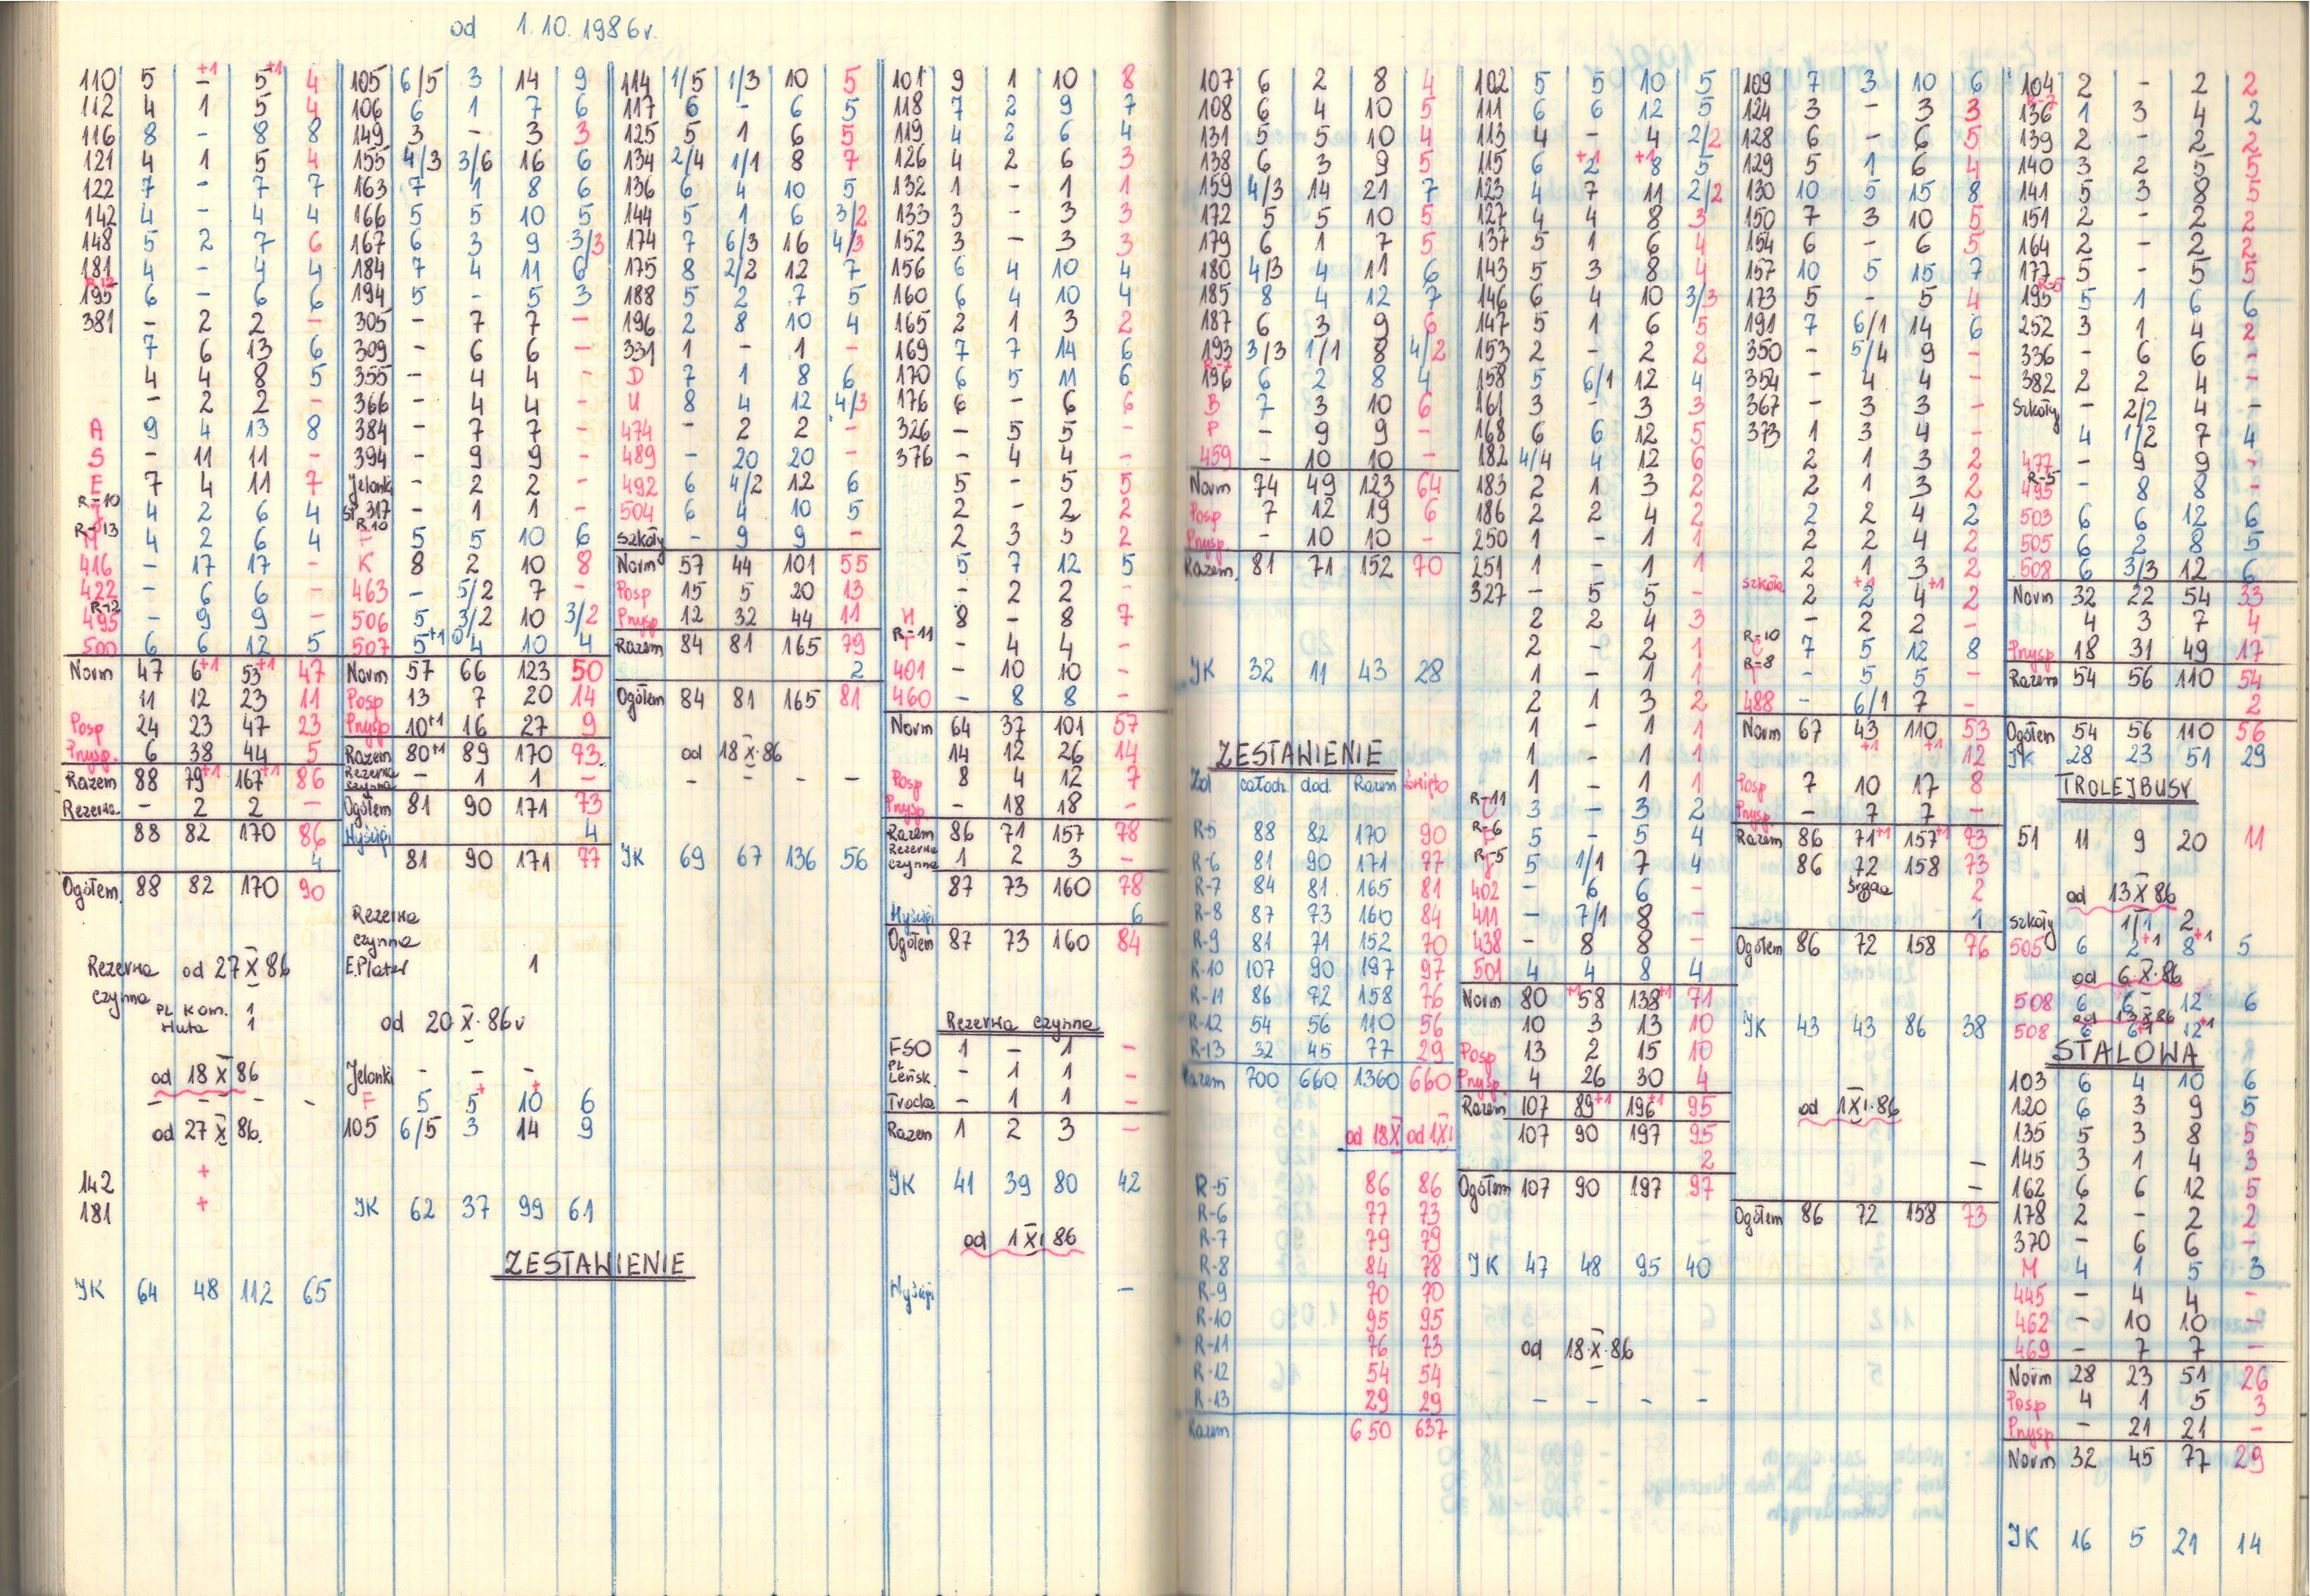 od 1.10.1986r.
110 5 - +1 5 +1 4
112 4 1 5 4
116 8 - 8 8
121 4 1 5 4
122 7 - 7 7
142 4 - 4 4
148 5 2 7 6
181 4 - 4 4
R-12
195 6 - 6 6
381 - 2 2 -
7 6 13 6
4 4 8 5
- 2 2 -
A 9 4 13 8
S - 11 11 -
E 7 4 11 7
R-10
4 2 6 4
R-13
4 2 6 4
416 - 17 17 -
422 - 6 6 -
R-12
495 - 9 9 -
500 6 6 12 5
Norm 47 6+1 53+1 47
11 12 23 11
Posp 24 23 47 23
Przysp. 6 38 44 5
Razem 88 79+1 167+1 86
Rezerwa - 2 2 -
88 82 170 86
4
Ogółem 88 82 170 90
Rezerwa od 27 X 86
czynna
Pl Kom. 1
Huta 1
od 18 X 86
- - - -
od 27 X 86.
142 +
181 +
JK 64 48 112 65
105 6/5 3 14 9
106 6 1 7 6
149 3 - 3 3
155 4/3 3/6 16 6
163 7 1 8 6
166 5 5 10 5
167 6 3 9 3/3
184 7 4 11 6
194 5 - 5 3
305 - 7 7 -
309 - 6 6 -
355 - 4 4 -
366 - 4 4 -
384 - 7 7 -
394 - 9 9 -
Jelonki - 2 2 -
SP 317 - 1 1 -
R10
F 5 5 10 6
K 8 2 10 8
463 - 5/2 7 -
506 5 3/2 10 3/2
507 5+1 4 10 4
Norm 57 66 123 50
Posp 13 7 20 14
Przysp 10+1 16 27 9
Razem 80+1 89 170 73
Rezerwa czynna - 1 1 -
Ogółem 81 90 171 73
Wyścigi 4
81 90 171 77
Rezerwa
czynna
E.Plater 1
od 20 X. 86r
Jelonki - - -
F 5 5+ 10+ 6
105 6/5 3 14 9
JK 62 37 99 61
ZESTAWIENIE
114 1/5 1/3 10 5
117 6 - 6 5
125 5 1 6 5
134 2/4 1/1 8 7
136 6 4 10 5
144 5 1 6 3/2
174 7 6/3 16 4/3
175 8 2/2 12 7
188 5 2 7 5
196 2 8 10 4
331 1 - 1 -
D 7 1 8 6
U 8 4 12 4/3
474 - 2 2 -
489 - 20 20 -
492 6 4/2 12 6
504 6 4 10 5
szkoły - 9 9 -
Norm 57 44 101 55
Posp 15 5 20 13
Przysp 12 32 44 11
Razem 84 81 165 79
2
Ogółem 84 81 165 81
od 18 X. 86
- - - -
JK 69 67 136 56
101 9 1 10 8
118 7 2 9 7
119 4 2 6 4
126 4 2 6 3
132 1 - 1 1
133 3 - 3 3
152 3 - 3 3
156 6 4 10 4
160 6 4 10 4
165 2 1 3 2
169 7 7 14 6
170 6 5 11 6
176 6 - 6 6
326 - 5 5 -
376 - 4 4 -
5 - 5 5
2 - 2 2
2 3 5 2
5 7 12 5
- 2 2 -
H 8 - 8 7
R-11
- 4 4 -
401 - 10 10 -
460 - 8 8 -
Norm 64 37 101 57
14 12 26 14
Posp 8 4 12 7
Przysp. - 18 18 -
Razem 86 71 157 78
Rezerwa czynna 1 2 3 -
87 73 160 78
Wyścigi 6
Ogółem 87 73 160 84
Rezerwa czynna
FSO 1 - 1 -
Pl Leńsk. - 1 1 -
Trocka - 1 1 -
Razem 1 2 3 -
JK 41 39 80 42
od 1 XI 86
Wyścigi -
107 6 2 8 4
108 6 4 10 5
131 5 5 10 4
138 6 3 9 5
159 4/3 14 21 7
172 5 5 10 5
179 6 1 7 5
180 4/3 4 11 6
185 8 4 12 7
187 6 3 9 6
193 3/3 1/1 8 4/2
R-7
196 6 2 8 4
B 7 3 10 6
P - 9 9 -
459 - 10 10 -
Norm 74 49 123 64
Posp 7 12 19 6
Przysp - 10 10 -
Razem 81 71 152 70
JK 32 11 43 28
ZESTAWIENIE
Zal całodz. dod. Razem święto
R-5 88 82 170 90
R-6 81 90 171 77
R-7 84 81 165 81
R-8 87 73 160 84
R-9 81 71 152 70
R-10 107 90 197 97
R-11 86 72 158 76
R-12 54 56 110 56
R-13 32 45 77 29
Razem 700 660 1360 660
od 18X od 1XI
R-5 86 86
R-6 77 73
R-7 79 79
R-8 84 78
R-9 70 70
R-10 95 95
R-11 76 73
R-12 54 54
R-13 29 29
Razem 650 637
102 5 5 10 5
111 6 6 12 5
113 4 - 4 2/2
115 6 2+1 8+1 5
123 4 7 11 2/2
127 4 4 8 3
137 5 1 6 4
143 5 3 8 4
146 6 4 10 3/3
147 5 1 6 5
153 2 - 2 2
158 5 6/1 12 4
161 3 - 3 3
168 6 6 12 5
182 4/4 4 12 6
183 2 1 3 2
186 2 2 4 2
250 1 - 1 1
251 1 - 1 1
327 - 5 5 -
2 2 4 3
2 - 2 1
1 - 1 1
2 1 3 2
1 - 1 1
1 - 1 1
1 - 1 1
R-11
3 - 3 2
R-6
5 - 5 4
R-5
5 1/1 7 4
402 - 6 6 -
411 - 7/1 8 -
438 - 8 8 -
501 4 4 8 4
Norm 80 +1 58 138+1 71
10 3 13 10
Posp 13 2 15 10
Przysp. 4 26 30 4
Razem 107 89+1 196+1 95
107 90 197 95
2
Ogółem 107 90 197 97
JK 47 48 95 40
od 18.X.86
- - - -
109 7 3 10 6
124 3 - 3 3
128 6 - 6 5
129 5 1 6 4
130 10 5 15 8
150 7 3 10 5
154 6 - 6 5
157 10 5 15 7
173 5 - 5 4
191 7 6/1 14 6
350 - 5/4 9 -
354 - 4 4 -
367 - 3 3 -
373 1 3 4 -
2 1 3 2
2 1 3 2
2 2 4 2
2 2 4 2
2 1 3 2
szkoła 2 2+1 4+1 2
- 2 2 -
R-10
7 5 12 8
R-8
- 5 5 -
488 - 6/1 7 -
Norm 67 43+1 110+1 53
12
Posp 7 10 17 8
Przysp. - 7 7 -
Razem 86 71+1 157+1 73
86 72 158 73
2
1
Ogółem 86 72 158 76
JK 43 43 86 38
od 1 XI.86
-
-
Ogółem 86 72 158 73
104 2 - 2 2
R-7
136 1 3 4 2
139 2 - 2 2
140 3 2 5 5
141 5 3 8 5
151 2 - 2 2
164 2 - 2 2
177 5 - 5 5
R-5
195 5 1 6 6
252 3 1 4 2
336 - 6 6 -
382 2 2 4 -
Szkoły - 2/2 4 -
4 1/2 7 4
477 - 9 9 -
R-5
495 - 8 8 -
503 6 6 12 6
505 6 2 8 5
508 6 3/3 12 6
Norm 32 22 54 33
4 3 7 4
Przysp 18 31 49 17
Razem 54 56 110 54
2
Ogółem 54 56 110 56
JK 28 23 51 29
TROLEJBUSY
51 11 9 20 11
od 13 X 86
szkoły 1/1 2
505 6 2+1 8+1 5
od 6.X.86
508 6 6 12 6
od 13 X 86
508 6 6+1 12+1
STALOWA
103 6 4 10 6
120 6 3 9 5
135 5 3 8 5
145 3 1 4 3
162 6 6 12 5
178 2 - 2 2
370 - 6 6 -
M 4 1 5 3
445 - 4 4 -
462 - 10 10 -
469 - 7 7 -
Norm 28 23 51 26
Posp 4 1 5 3
Przysp - 21 21 -
Norm 32 45 77 29
JK 16 5 21 14